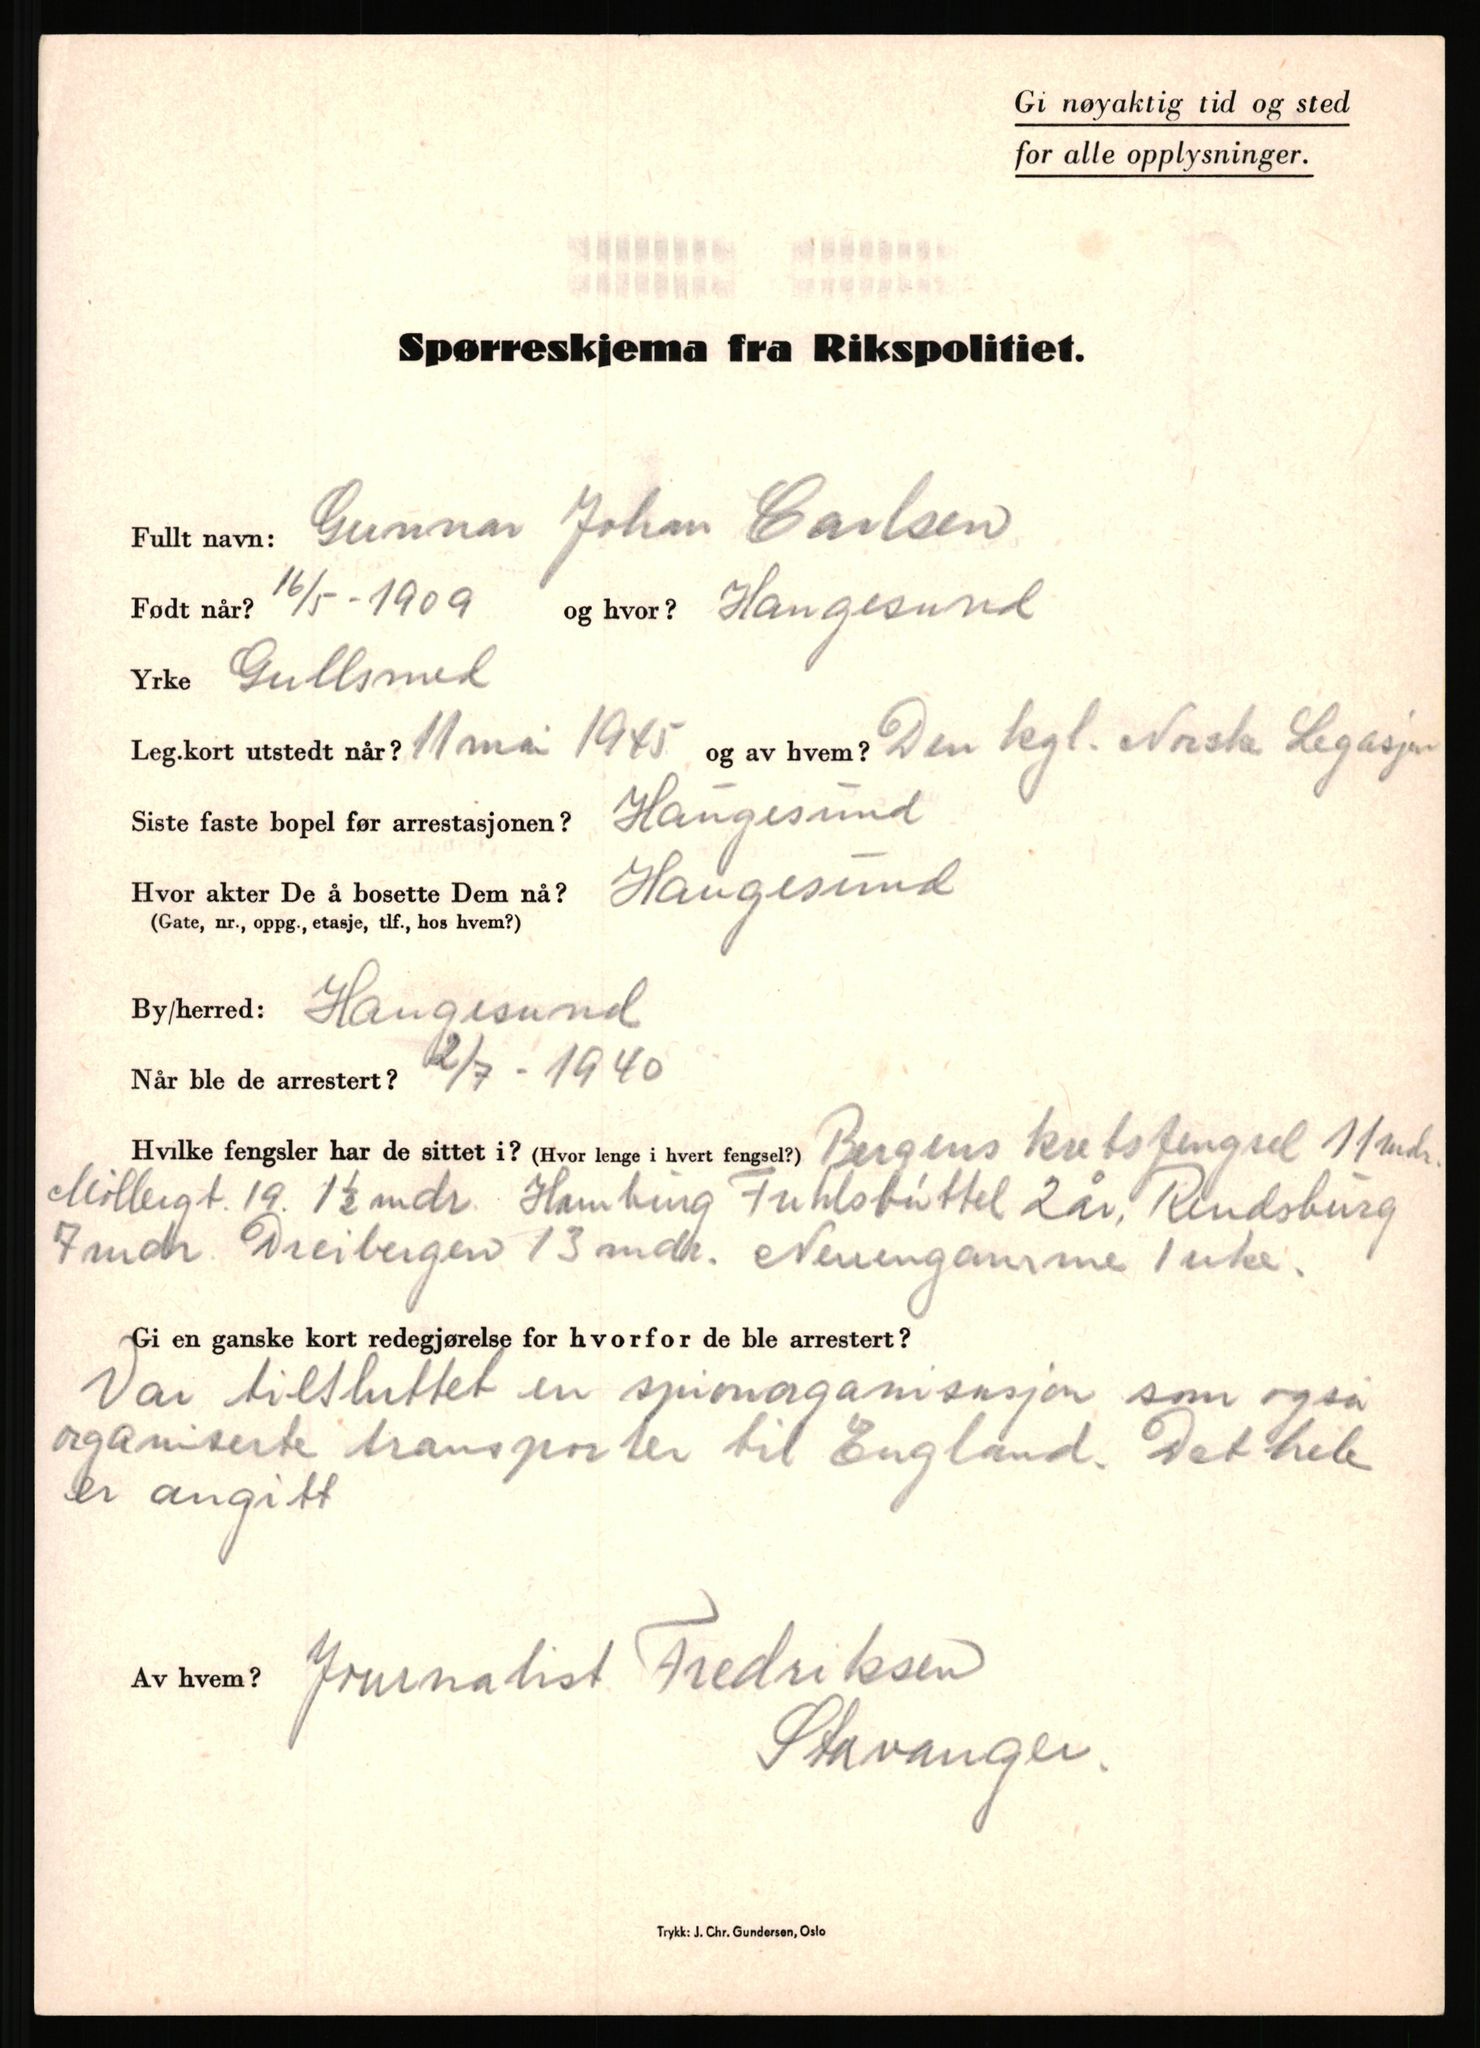 Gi nøyaktig tid og sted
for alle opplysninger.
Spørreskjema fra Rikspolitiet.
Fullt navn: Gunnar Johan Carlsen
Født når? 16/5 - 1909 og hvor? Haugesund
Yrke Gullsmed
Leg.kort utstedt når? 11 mai 1945 og av hvem? Den kgl. Norske Legasjon
Siste faste bopel før arrestasjonen? Haugesund
Hvor akter De å bosette Dem nå? Haugesund
(Gate, nr., oppg., etasje, tlf., hos hvem?)
By/herred: Haugesund
Når ble de arrestert? 2/7 - 1940
Hvilke fengsler har de sittet i? (Hvor lenge i hvert fengsel?) Bergens kretsfengsel 11 mdr.
Møllergt. 19. 1½ mdr. Hamburg Fuhlsbüttel 2 år, Rendsburg
7 mdr. Dreibergen 13 mdr. Neuengamme 1 uke.
Gi en ganske kort redegjørelse for hvorfor de ble arrestert?
Var tilsluttet en spionorganisasjon som også
organiserte transporter til England. Det hele
er angitt
Av hvem? Journalist Fredriksen
Stavanger.
Trykk: J. Chr. Gundersen, Oslo